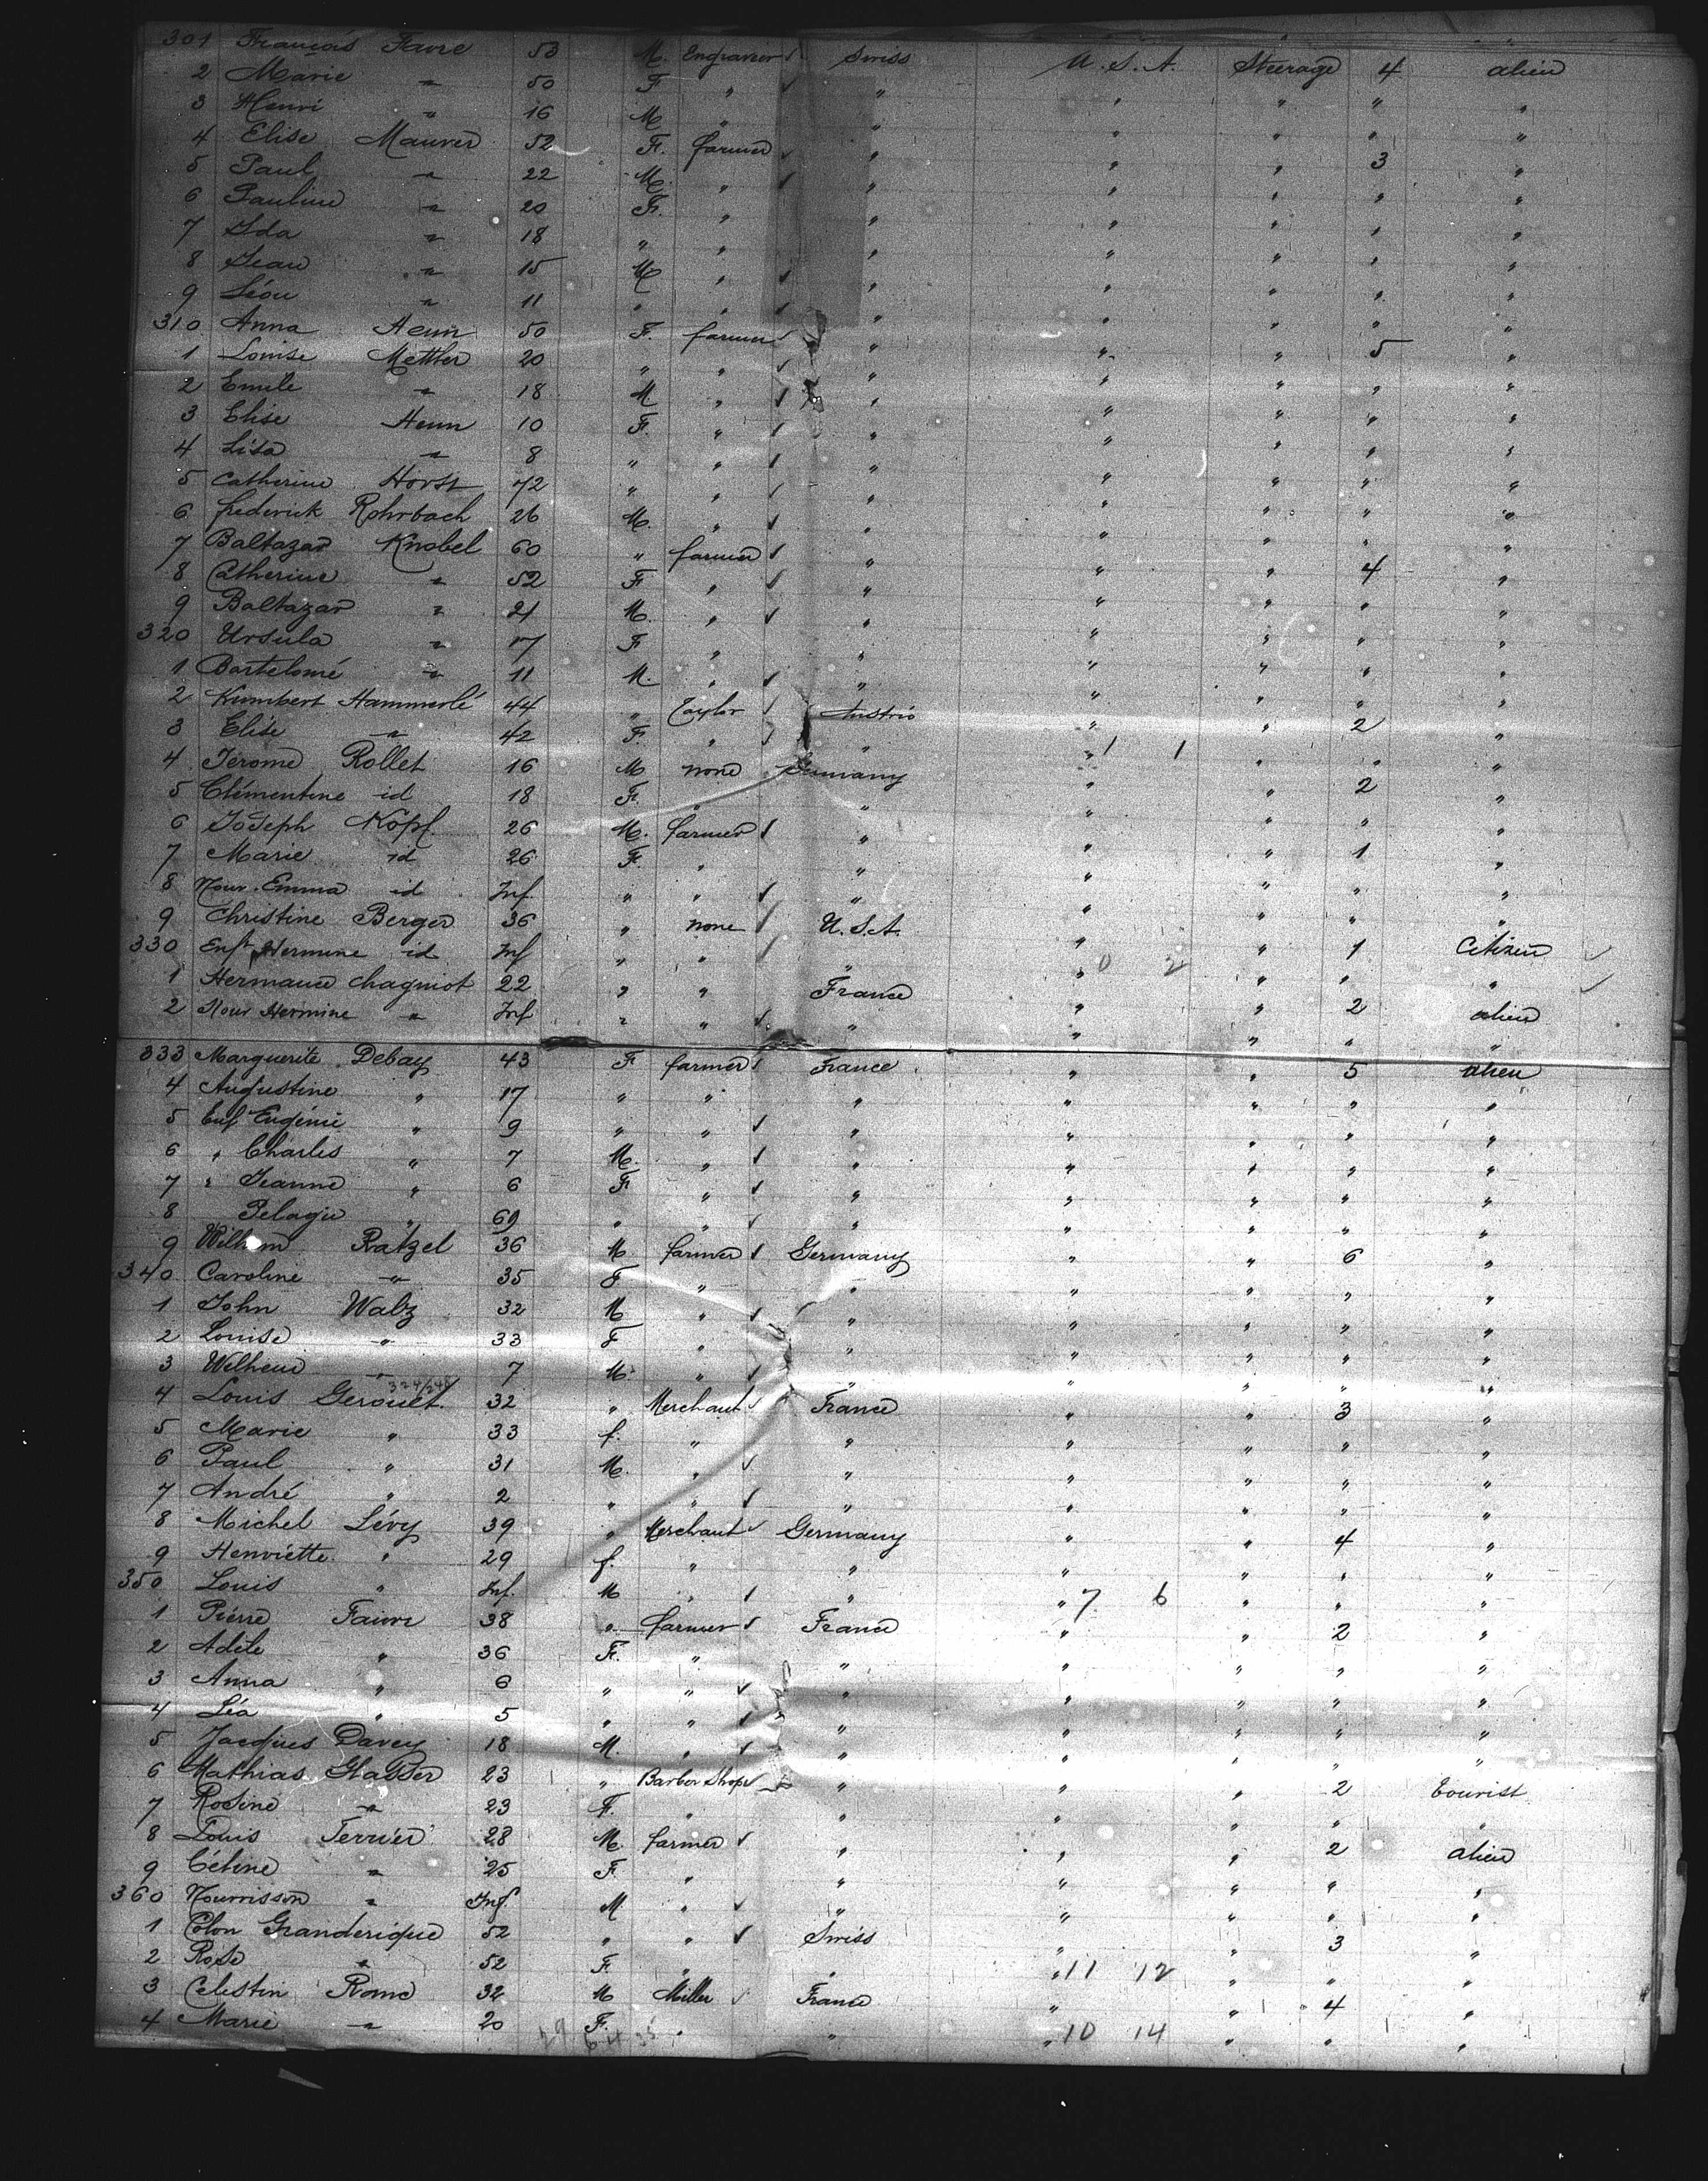 301 François Favre 53 M. Engraver Swiss U.S.A. Steerage 4 alien
2 Marie " 50 F " " " " " "
3 Henri " 16 M " " " " " "
4 Elise Maurer 52 F. farmer " " " 3 "
5 Paul " 22 M. " " " " " "
6 Pauline " 20 F. " " " " " "
7 Ida " 18 " " " " " " "
8 Jean " 15 M " " " " " "
9 Léon " 11 " " " " " " "
310 Anna Henn 50 F. farmer " " " 5 "
1 Louise Mettler 20 " " " " " " "
2 Emile " 18 M " " " " " "
3 Elise Henn 10 F. " " " " " "
4 Lisa " 8 " " " " " " "
5 Catherine Horst 72 " " " " " " "
6 frederick Rohrbach 26 M. " " " " " "
7 Baltazar Knobel 60 " farmer " " " 4 "
8 Catherine " 52 F " " " " " "
9 Baltazar " 21 M. " " " " " "
320 Ursula " 17 F " " " " " "
1 Bartelomé " 11 M. " " " " " "
2 Kumbert Hammerlé 44 " Taylor Austria " " 2 "
3 Elise " 42 F. " " " 1 1 " " "
4 Jerome Rollet 16 M none Germany " " 2 "
5 Clémentine id 18 F. " " " " " "
6 Joseph Kopf. 26 M. farmer " " " 1 "
7 Marie id 26 F. " " " " " "
8 Nour. Emma id Inf. " " " " " " "
9 Christine Berger 36 " none U.S.A. " " 1 Citizen
330 Enft Hermine id Inf " " " " 0 2 " " "
1 Hermance Chagniot 22 " " France " " 2 alien
2 Nour Hermine " Inf " " " " " " "
333 Marguerite Debay 43 F farmer France " " 5 alien
4 Augustine " 17 " " " " " " "
5 Enf Eugénie " 9 " " " " " " "
6 " Charles " 7 M. " " " " " "
7 " Jeanne " 6 F " " " " " "
8 Pelagie " 69 " " " " " " "
9 Wilhem Ratzel 36 M. farmer Germany " " 6 "
340 Caroline " 35 F " " " " " "
1 John Walz 32 M " " " " " "
2 Louise " 33 F " " " " " "
3 Welhem " 7 M. " " " " " "
4 Louis Gerouet. 32 " Merchant France " " 3 "
5 Marie " 33 f. " " " " " "
6 Paul " 31 M. " " " " " "
7 André " 2 " " " " " " "
8 Michel Lévy 39 " Merchant Germany " " 4 "
9 Henriette " 29 f. " " " " " "
350 Louis " Inf. M " " " 7 6 " " "
1 Piérre Faivre 38 " farmer France " " 2 "
2 Adèle " 36 F. " " " " " "
3 Anna " 6 " " " " " " "
4 Léa " 5 " " " " " " "
5 Jacques Davey 18 M. " " " " " "
6 Mathias Glasser 23 " Barber Shop " " " 2 tourist
7 Rosine " 23 F. " " " " " "
8 Louis Terrier 28 M. farmer " " " 2 alien
9 Céline " 25 F " " " " " "
360 Nourrisson " Inf. M " " " " " "
1 Colon Granderique 52 " " Swiss " " 3 "
2 Rose " 52 F. " " " 11 12 " " "
3 Celestin Rome 32 M Miller France " " 4 "
4 Marie " 20 F. " " " 10 14 " " "